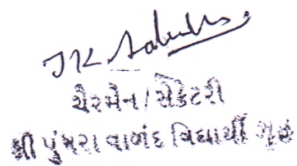 ચેરમેન/સેક્રેટરી
શ્રી પુંમરા વાળંદ વિદ્યાર્થી ગૃહ